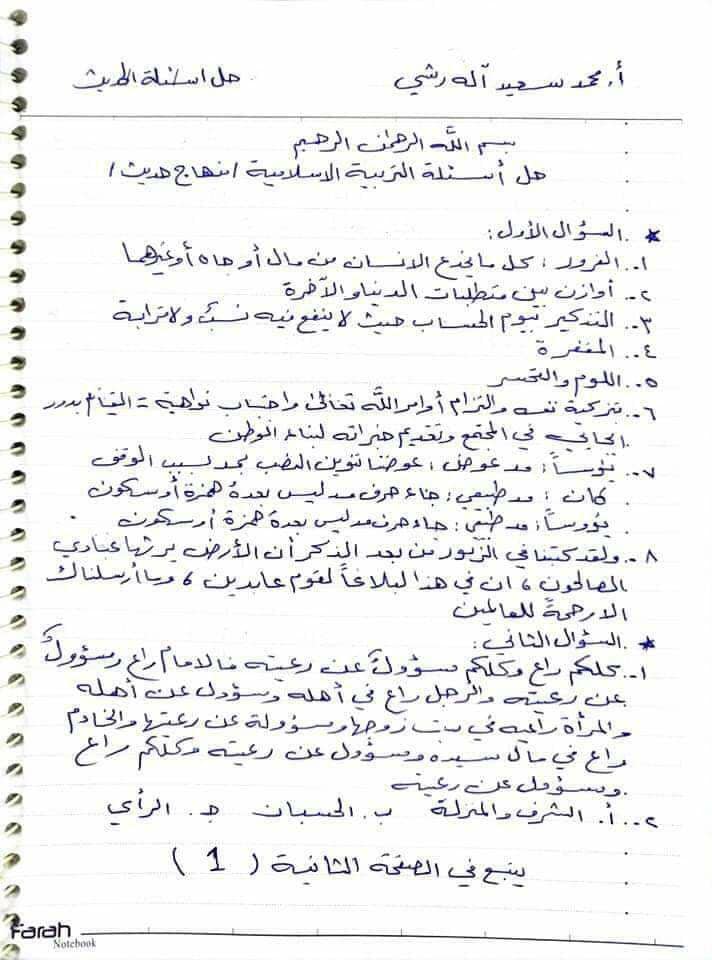 أ. محمد سعيد آله رشي حل اسئلة الحديث
بسم الله الرحمن الرحيم
حل أسئلة التربية الاسلامية / منهاج حديث /
* السؤال الأول:
١- الغرور: كل ما يخدع الانسان من مال أو جاه أو غيرهما
٢- أوازن بين متطلبات الدنيا والآخرة
٣- التذكير بيوم الحساب حيث لا ينفع فيه نسب ولا قرابة
٤- المغفرة
٥- اللوم والتحسر
٦- تزكية نفسه والتزام أوامر الله تعالى واجتناب نواهية = القيام بدور
ايجابي في المجتمع وتقديم خبراته لبناء الوطن
٧- يؤساً: مد عوض: عوضنا تنوين النصب بمد بسبب الوقف
كان: مد طبيعي: جاء حرف مد ليس بعدة همزة أو سكون
يؤوساً: مد طبيعي: جاء حرف مد ليس بعدة همزة أو سكون
٨- ولقد كتبنا في الزبور من بعد الذكر أن الأرض يرثها عبادي
الصالحون ، ان في هذا لبلاغاً لقوم عابدين ، وما أرسلناك
الا رحمةً للعالمين
* السؤال الثاني:
١- كلكم راع وكلكم مسؤولٌ عن رعيته فالامام راع ومسؤولٌ
عن رعيته والرجل راع في أهله ومسؤول عن أهله
والمرأة راعيه في بيت زوجها ومسؤولة عن رعيتها والخادم
راع في مال سيده ومسؤول عن رعيته وكلكم راع
ومسؤول عن رعيته
٢- أ. الشرف والمنزلة ب. الحسبان ج. الرأي
يتبع في الصفحة الثانية ( 1 )
Farah
Notebook